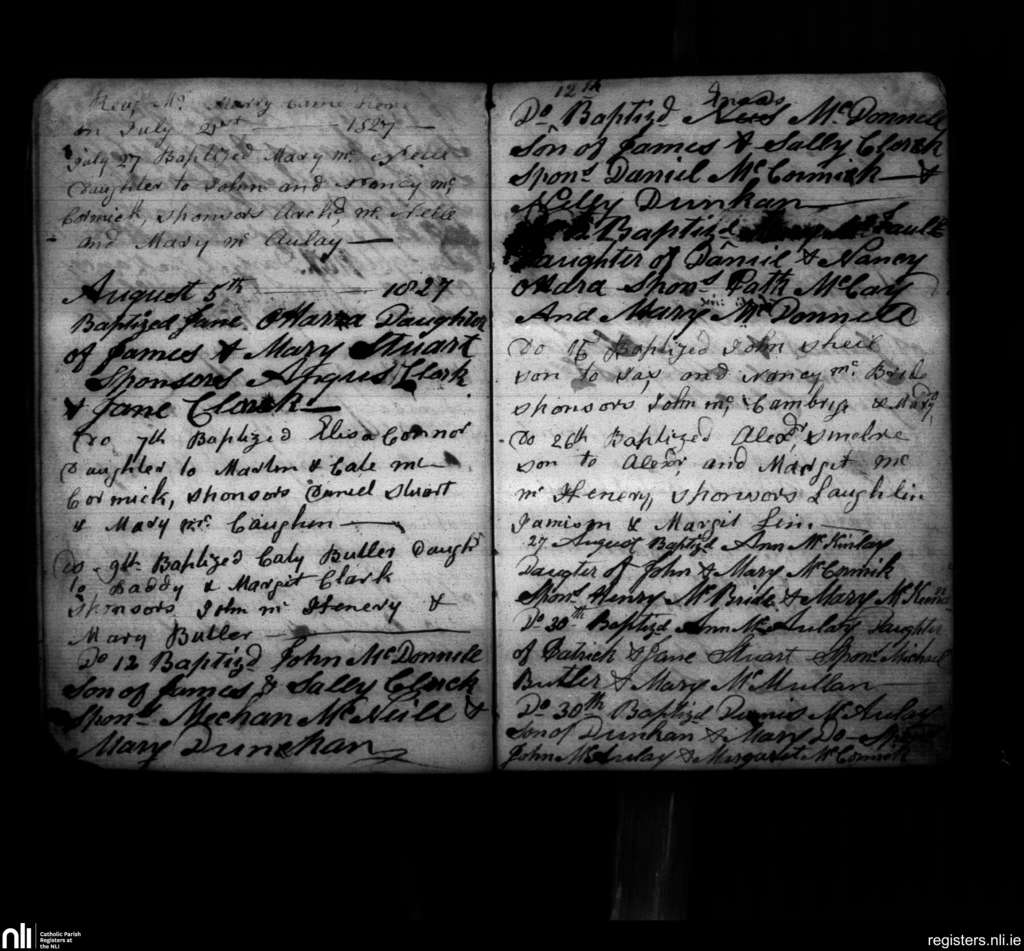 Revd. Mr. Marry Came home
on July 21st 1827
July 27 Baptized Mary mc
Daughter to John and Nancy mc
Cormick, sponsors Archd. mc Neill
and Mary mc Aulay
August 5th 1827
Baptized Jane OHarra Daughter
of James & Mary Stuart
Sponsors Angus Clerk
& Jane Clerk
Do 7th Baptized Elisa Connor
Daughter to Martin & Cate mc
Cormick, sponsors Daniel Stuart
& Mary mc Caughen
Do 9th Baptized Caty Butler Daught
to Paddy & Margit Clark
Sponsors John mc Henery &
Mary Butler
Do 12 Baptizd John McDonnell
Son of James & Sally Clerck
Spons. Mechan McNeill &
Mary Dunckan
12th
Do Baptizd Mc Donnell
Son of James & Sally Clorck
Spons. Daniel McCormick &
Nelly Dunkan
Baptizd
Daughter of Daniel & Nancy
OHara Spons. Patk McCay
And Mary McDonnell
Do 16 Baptized John Sheil
son to and Nancy mc Bride
sponsors John mc Cambrig & Mary
Do 26th Baptized Alexdr.
son to Alexdr. and Margit mc
mc Henery, sponsors Laughlin
Jamison & Margit
27 August Baptizd Ann McKinlay
Daugter of John & Mary McCormik
Spons. Henry McBride & Mary McKinlay
Do 30th Baptizd Ann McAulay Daughter
of Patrick & Jane Stuart Spons. Michael
Butler & Mary McMullan
Do 30th Baptizd Dennis McAulay
Son of Dunkan & Mary Do
John McAulay & Margaret McCormick
nli Catholic Parish
Registers at
the NLI
registers.nli.ie